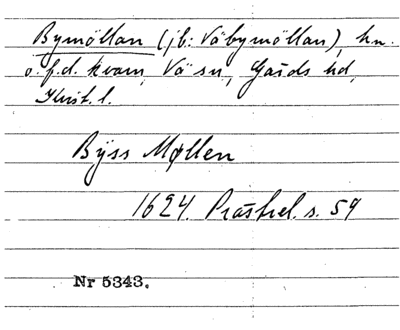 Bymöllan (jb: Väbymöllan), hn.
o. f.d. kvarn, Vä sn, Gärds hd,
Krist. l.
Bÿss Møllen
1624. Prästrel. s. 59
Nr 5343.